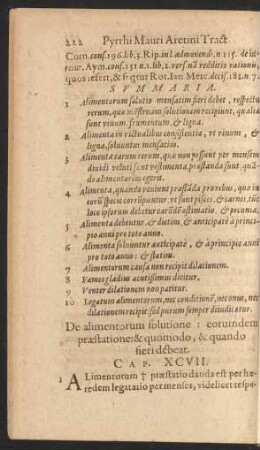 222 Pyrrhi Mauri Aretini Tract
Com. cons. 196. lib. 5. Rip. in l. admonendi, n. 115. de iure
iur. Aym. cons. 151 n. 1. lib. 2. versu nã redditio rationū,
quos refert, & sequr Rot. Ian Merc. decis. 182. n. 7.
SVMMARIA.
1 Alimentorum solutio mensatim fieri debet, respectu
rerum, quæ mēstruam solutionem recipiunt, qualia
sunt vinum frumentum, & ligna.
2 Alimenta in victualibus consistentia, vt vinum, &
ligna, soluuntur mensatim.
3 Alimenta earum rerum, quæ non possunt per mensem
diuidi veluti sunt vestimenta, præstanda sunt, quā-
do alimentarius egerit.
4 Alimenta, quando veniunt præstāda pro rebus, quæ in
certa specie corrūpuntur, vt sunt pisces, & carnes, tūc
loco ipsorum debetur earūdē æstimatio, & pecunia,
5 Alimenta debentur, & dutim, & anticipatè à princi-
pio anni pro toto anno.
6 Alimenta soluuntur anticipatè, & à principio anni
pro toto anno: & statim.
7 Alimentorum causa non recipit dilationem.
8 Fames gladius acutissimus dicitur.
9 Venter dilationem non patitur.
10 Legatum alimentorum, nec conditionē, nec onus, nec
dilationem recipit sed purum semper diiudicatur.
De alimentorum solutione: eorundem
præstatione: & quomodo, & quando
fieri debeat.
CAP. XCVII.
1 ALimentorum † præstatio danda est per hæ-
redem legatario per menses, videlicet respe-